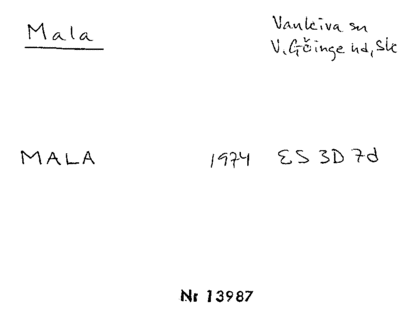 Mala
Vankiva sn
V. Göinge hd, Sk
MALA 1974 ES 3D 7d
Nr 13987